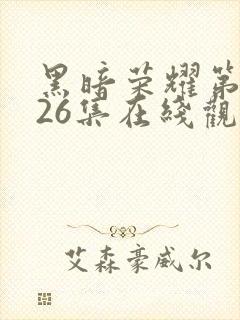 黑暗荣耀第
26集在线觀
艾森豪威尔